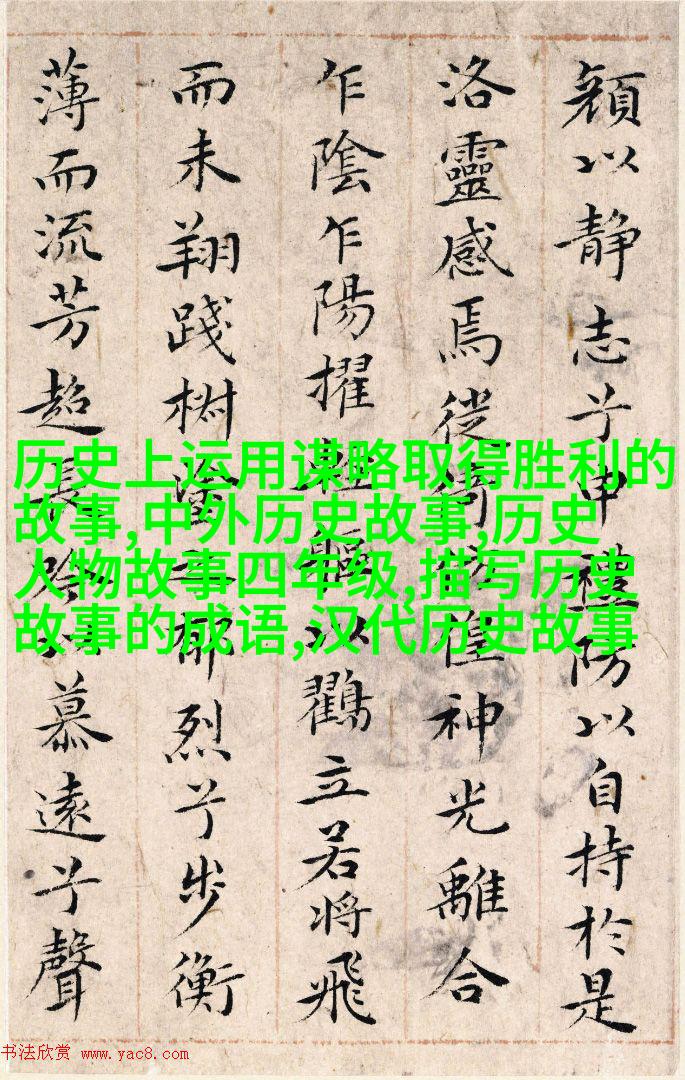 顏以静志兮申禮防以自持於是
洛靈感焉徙倚神光離合
乍陰乍陽擢輕軀以鶴立若將飛
而未翔踐椒塗之郁烈兮步衡
薄而流芳超長吟以慕遠兮聲
历史上运用谋略取得胜利的
故事,中外历史故事,历史
人物故事四年级,描写历史
故事的成语,汉代历史故事
书法欣赏 www.yac8.com